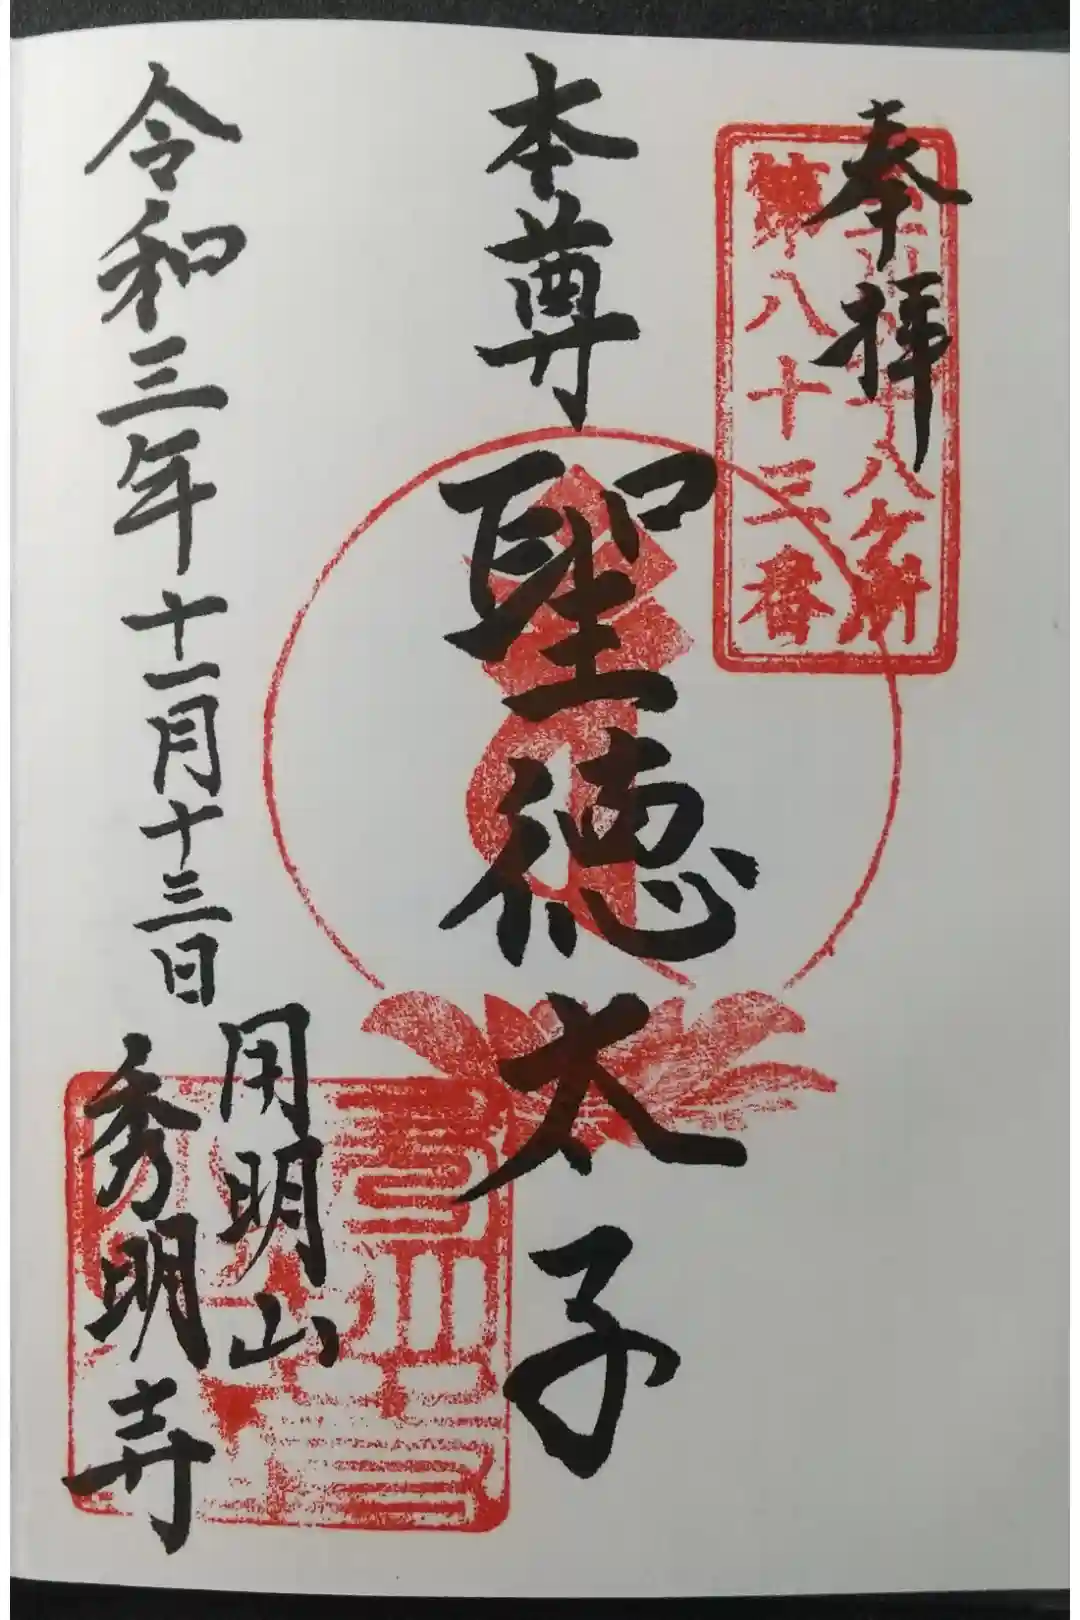 奉拝
第八十三番
本尊
聖徳太子
令和三年十一月十三日
用明山
秀明寺